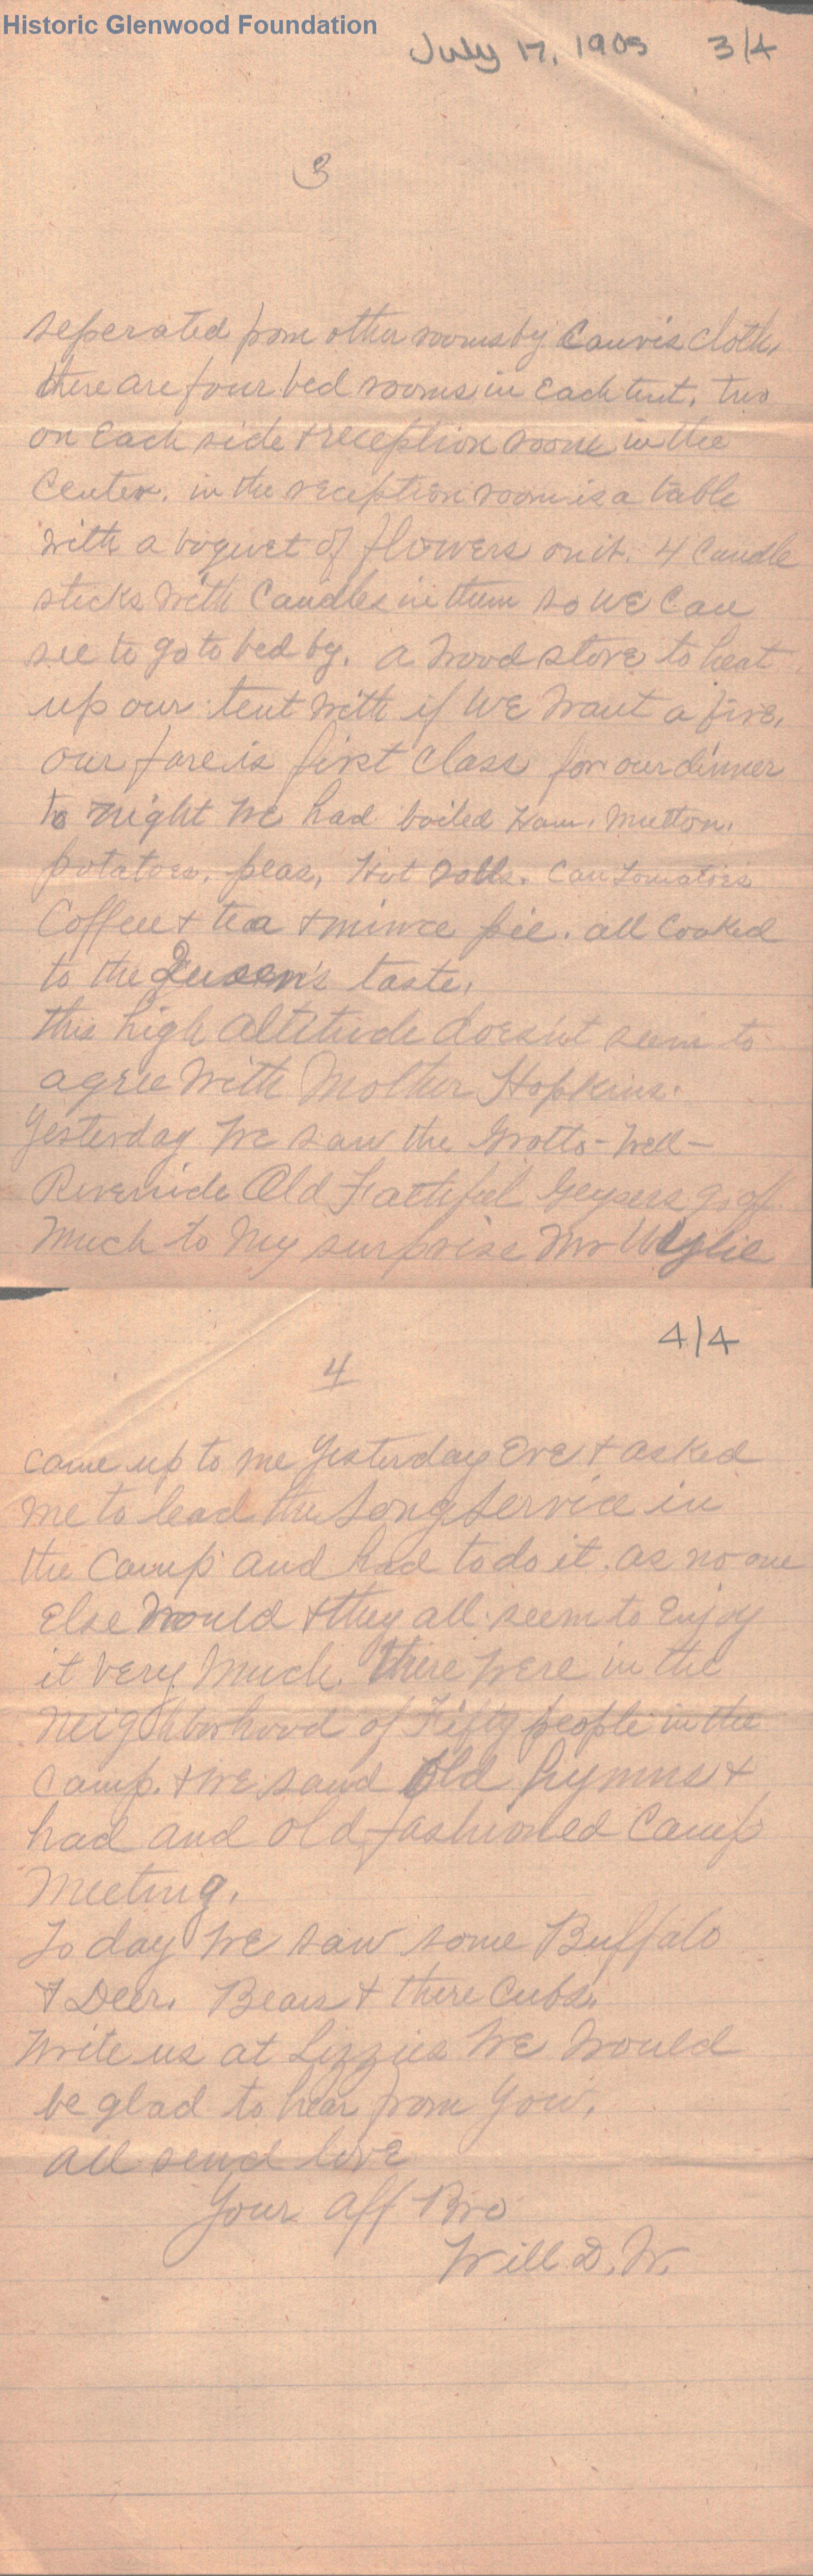 Historic Glenwood Foundation
July 17, 1905 3/4
3
seperated from other rooms by Canvis cloth,
there are four bed rooms in Each tent, two
on Each side + reception room in the
Center. in the reception room is a table
with a boquet of flowers on it. 4 Candle
sticks with Candles in them so WE Can
see to go to bed by. a wood stove to heat
up our tent with if WE want a fire,
our fare is first class for our dinner
to night we had boiled Ham, Mutton,
potatoes, peas, Hot Rolls. Can Tomatoes
Coffee + tea + mince pie. all Cooked
to the Queen's taste,
this high altitude doesn't seem to
agree with Mother Hopkins.
Yesterday We saw the Grotto - Well -
Riverside Old Faithful Geysers go off
Much to My surprise Mr Wylie
4/4
4
came up to me Yesterday Eve + asked
me to lead the Song Service in
the Camp and had to do it. as no one
Else would + they all seem to Enjoy
it very Much. there were in the
neighborhood of Fifty people in the
camp. + WE sand Old hymns +
had and old fashioned Camp
Meeting.
To day WE saw some Buffalo
+ Deer. Bears + there Cubs.
Write us at Lizzies WE would
be glad to hear from You,
All send love
Your Aff Bro
Will D. W.